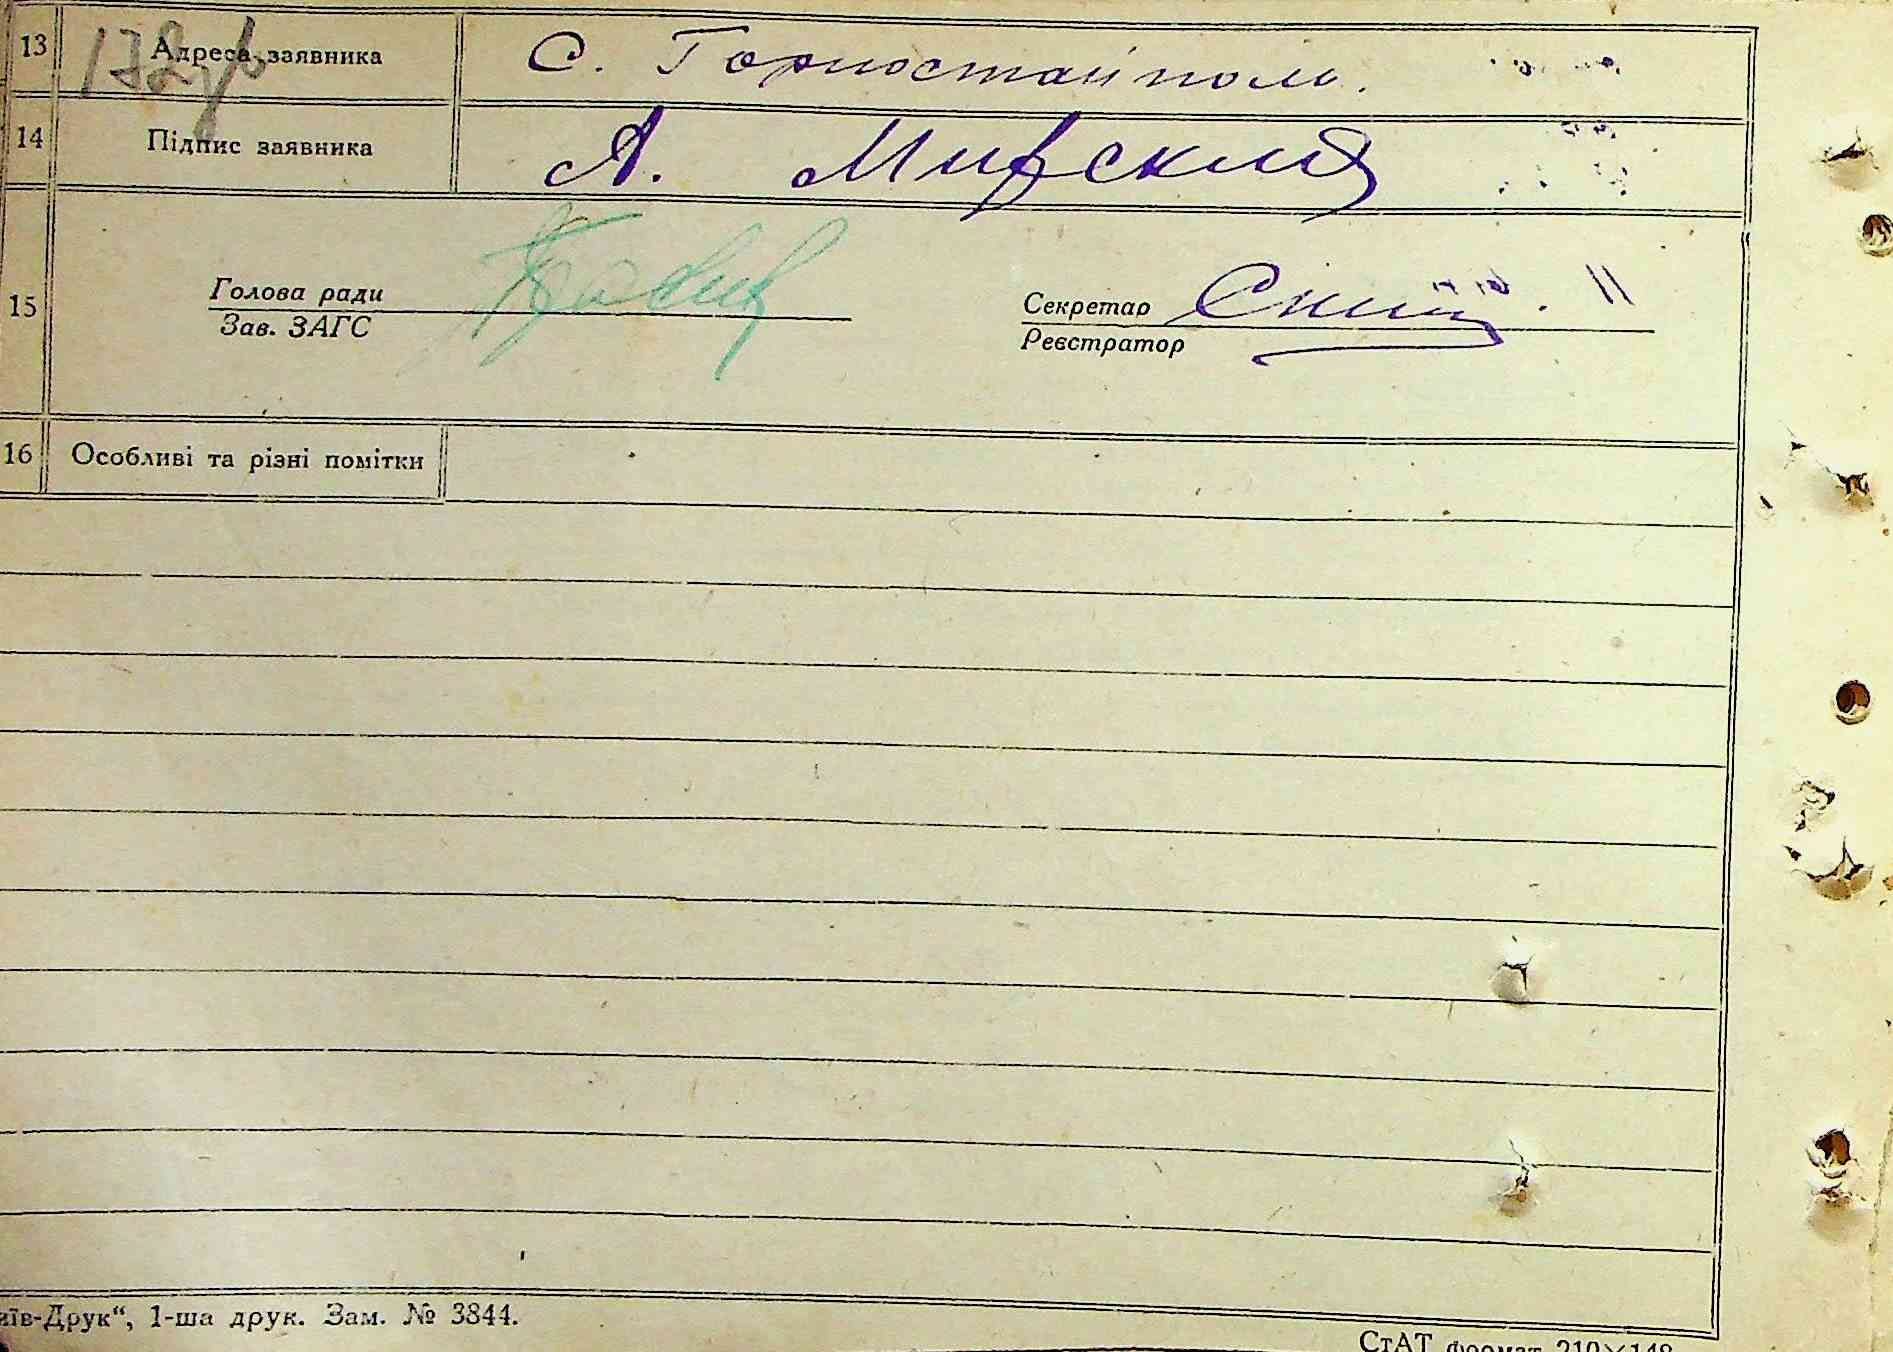 13 Адреса заявника С. Горностайполь.
14 Підпис заявника А. Мирский
15 Голова ради Секретар
Зав. ЗАГС Реєстратор
16 Особливі та різні помітки
иїв-Друк“, 1-ша друк. Зам. № 3844.
СтАТ формат 210×148